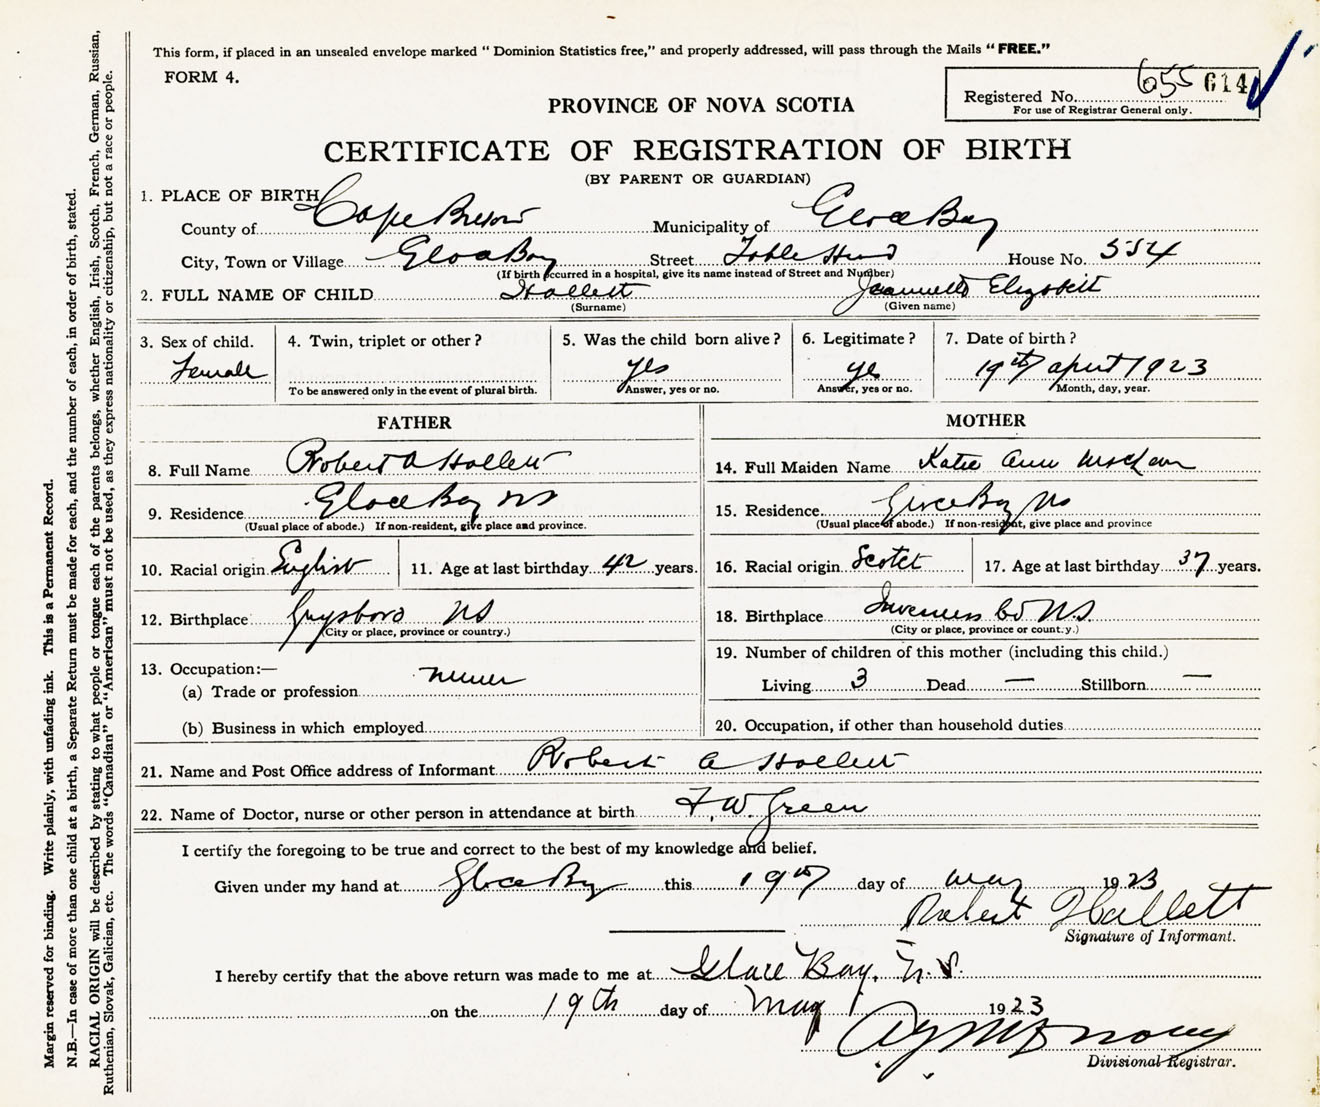 This form, if placed in an unsealed envelope marked "Dominion Statistics free," and properly addressed, will pass through the Mails "FREE."
FORM 4.
655 614
Registered No.
For use of Registrar General only.
PROVINCE OF NOVA SCOTIA
CERTIFICATE OF REGISTRATION OF BIRTH
(BY PARENT OR GUARDIAN)
1. PLACE OF BIRTH
County of Cape Breton Municipality of Glace Bay
City, Town or Village Glace Bay Street Table Head House No. 554
(If birth occurred in a hospital, give its name instead of Street and Number)
2. FULL NAME OF CHILD Hollett Jeannette Elizabeth
(Surname) (Given name)
3. Sex of child. 4. Twin, triplet or other? 5. Was the child born alive? 6. Legitimate? 7. Date of birth?
Female yes ye 19th April 1923
To be answered only in the event of plural birth. Answer, yes or no. Answer, yes or no. Month, day, year.
FATHER
8. Full Name Robert A Hollett
9. Residence Glace Bay NS
(Usual place of abode.) If non-resident, give place and province.
10. Racial origin English 11. Age at last birthday 42 years.
12. Birthplace Guysboro NS
(City or place, province or country.)
13. Occupation:—
(a) Trade or profession miner
(b) Business in which employed
MOTHER
14. Full Maiden Name Katie Ann
15. Residence Glace Bay NS
(Usual place of abode.) If non-resident, give place and province
16. Racial origin Scotch 17. Age at last birthday 37 years.
18. Birthplace Inverness Co NS.
(City or place, province or country.)
19. Number of children of this mother (including this child.)
Living 3 Dead — Stillborn —
20. Occupation, if other than household duties
21. Name and Post Office address of Informant Robert A Hollett
22. Name of Doctor, nurse or other person in attendance at birth F. W. Green
I certify the foregoing to be true and correct to the best of my knowledge and belief.
Given under my hand at Glace Bay this 19th day of May 1923
Robert Hallett
Signature of Informant.
I hereby certify that the above return was made to me at Glace Bay, N.S.
on the 19th day of May 1923
Divisional Registrar.
Margin reserved for binding. Write plainly, with unfading ink. This is a Permanent Record.
N.B.—In case of more than one child at a birth, a Separate Return must be made for each, and the number of each, in order of birth, stated.
RACIAL ORIGIN will be described by stating to what people or tongue each of the parents belongs, whether English, Irish, Scotch, French, German, Russian,
Ruthenian, Slovak, Galician, etc. The words "Canadian" or "American" must not be used, as they express nationality or citizenship, but not a race or people.